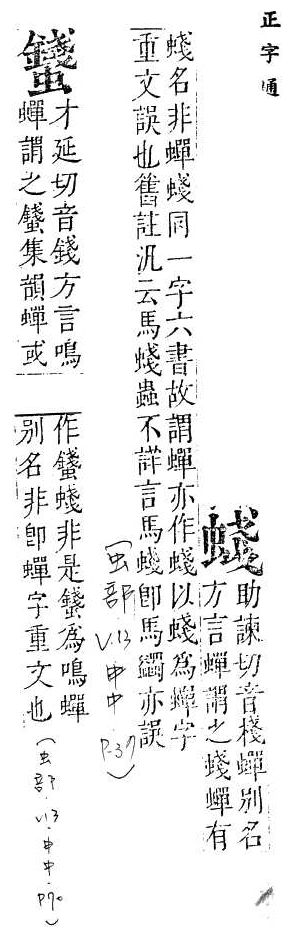 正字通
蝬
助諫切音棧蟬別名
方言蟬謂之蝬蟬有
蝬名非蟬蝬同一字六書故謂蟬亦作蝬以蝬為蟬字
重文誤也舊註汎云馬蝬蟲不詳言馬蝬卽馬蠲亦誤
(虫部 V.13 申中 P.37)
䥪
才延切音錢方言鳴
蟬謂之䥪集韻蟬或
作䥪蝬非是䥪為鳴蟬
別名非卽蟬字重文也
(虫部 V.13 申中 P.70)